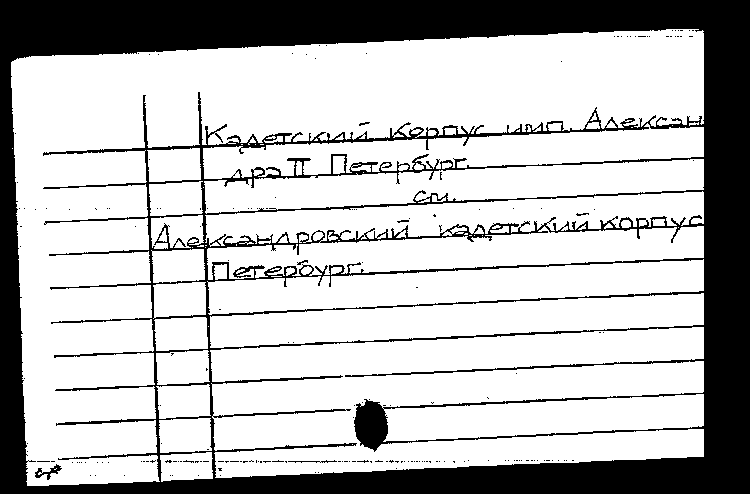 Кадетский корпус имп. Алексан
дра II. Петербург.
см.
Александровский кадетский корпус
Петербург.